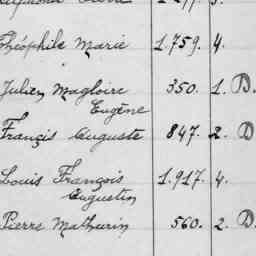 Théophile Marie 1.759. 4.
Julien Magloire 350. 1. D.
Eugène
Francis Auguste 847. 2. D
Louis François 1.917. 4.
Augustin
Pierre Mathurin 560. 2. D.